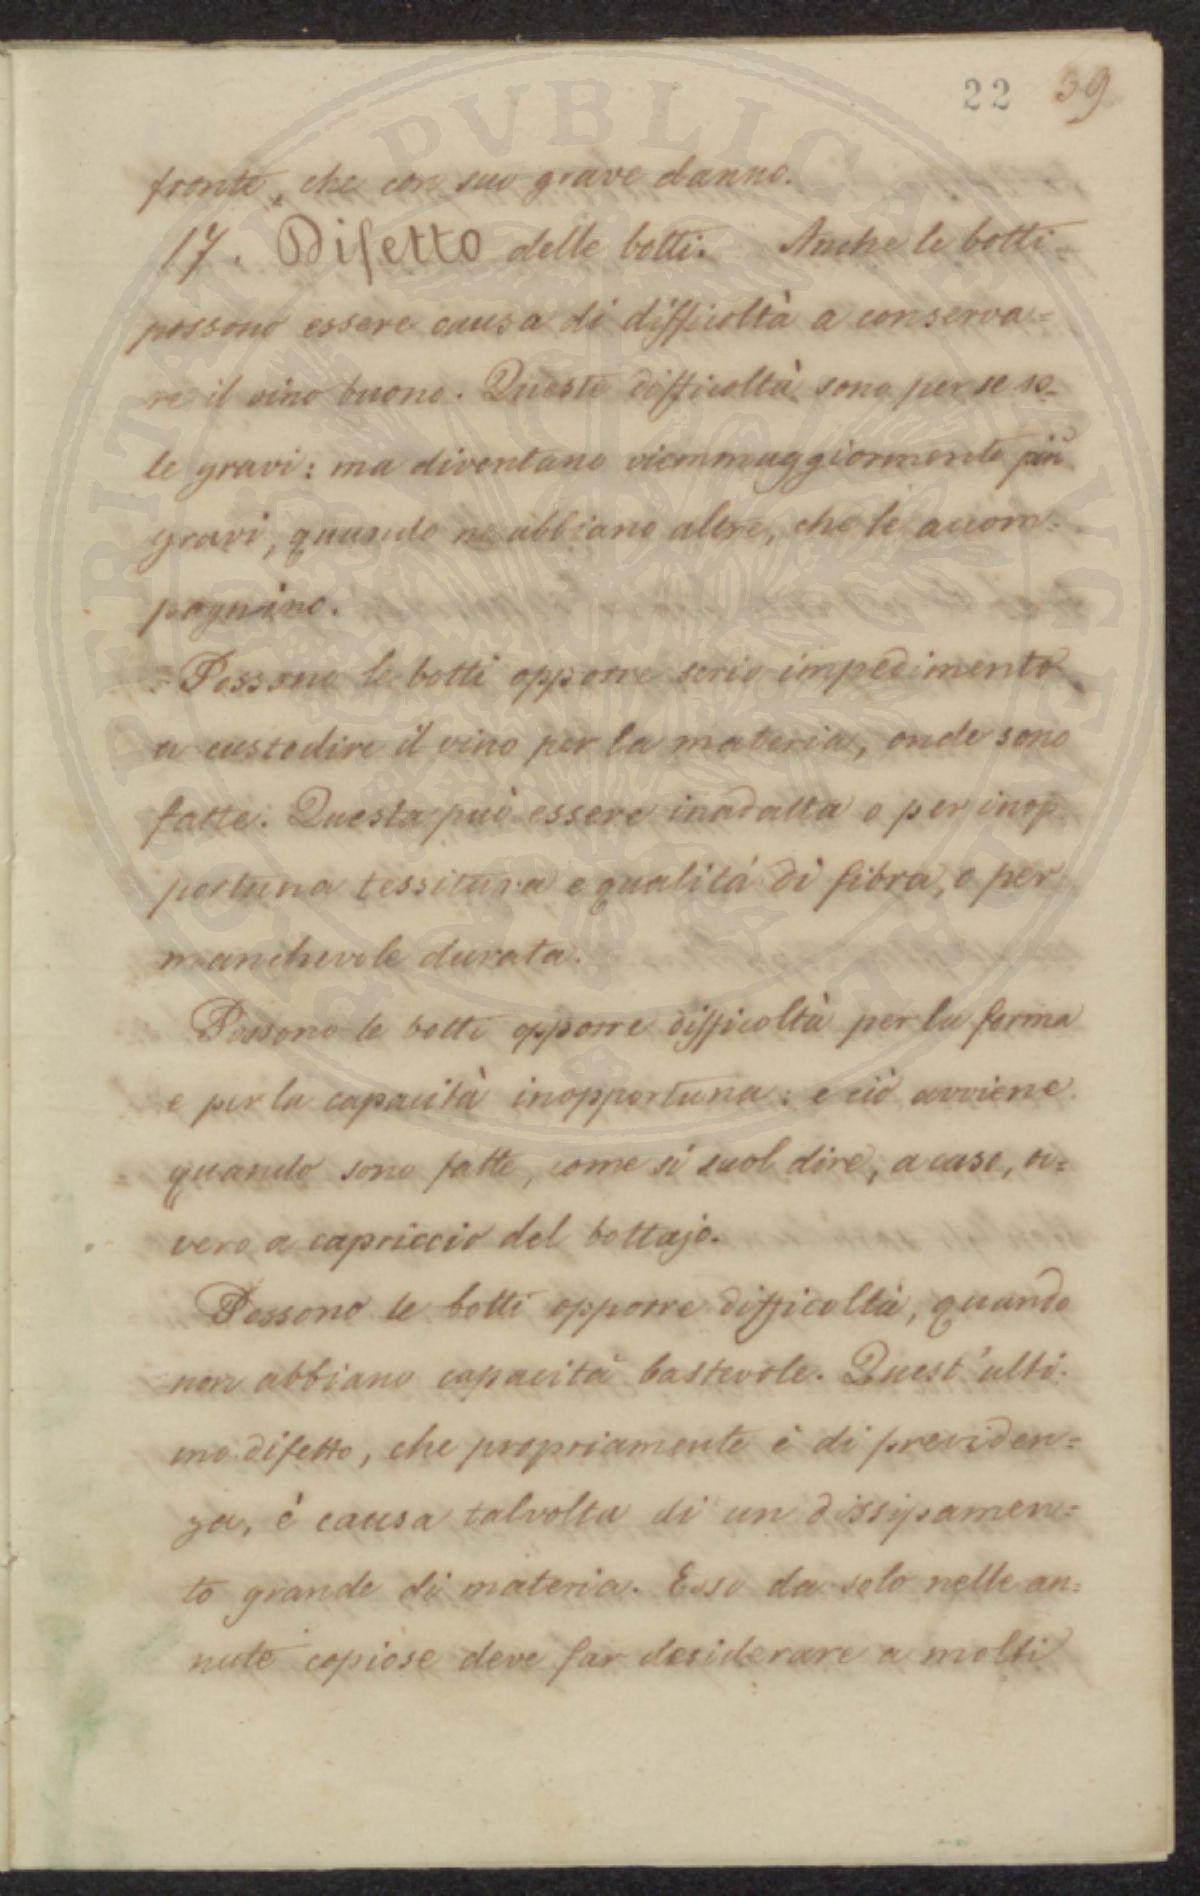 22 39
fronte, che con suo grave danno.
17. Difetto delle botti. Anche le botti
possono essere causa di difficoltà a conserva=
re il vino buono. Queste difficoltà sono per se so=
le gravi: ma diventano viemmaggiormente più
gravi, quando ne abbiano altre, che le accom=
pagnino.
Possono le botti opporre serio impedimento
a custodire il vino per la materia, onde sono
fatte. Questa può essere inadatta o per inop
portuna tessitura e qualità di fibra, o per
manchevole durata.
Possono le botti opporre difficoltà per la forma
e per la capacità inopportuna: e ciò avviene
quando sono fatte, come si suol dire, a caso, ov=
vero a capriccio del bottajo.
Possono le botti opporre difficoltà, quando
non abbiano capacità bastevole. Quest'ulti.
mo difetto, che propriamente è di previden=
za, è causa talvolta di un dissipamen=
to grande di materia. Esso da solo nelle an=
nate copiose deve far desiderare a molti